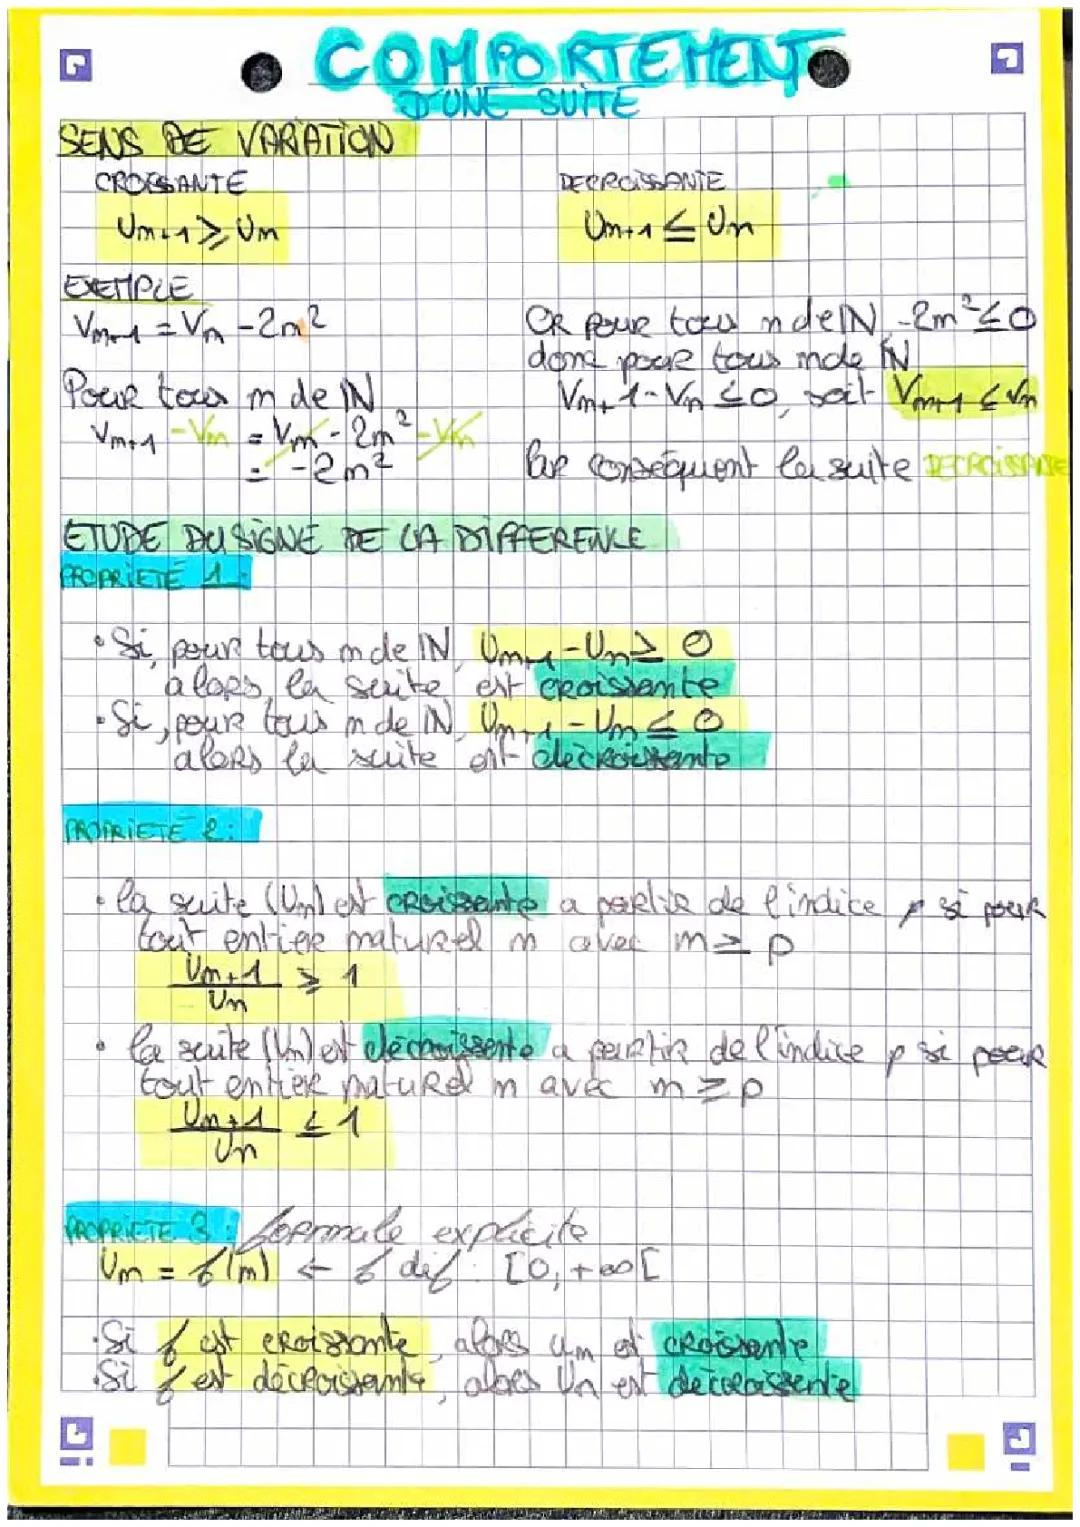 COMPORTEMENT
D'UNE SUITE
SENS DE VARIATION
CROISSANTE
Un+1 ⩾ Un
DECROISSANTE
Un+1 ≤ Un
EXEMPLE
Vn+1 = Vn - 2n²
Pour tous n de IN
Vn+1 - Vn = Vn - 2n² - Vn
= -2n²
OR pour tous n de IN, -2n² ≤ 0
donc pour tous n de IN
Vn+1 - Vn ≤ 0, soit Vn+1 ≤ Vn
Par conséquent la suite DECROISSANTE
ETUDE DU SIGNE DE LA DIFFERENCE
PROPRIETE 1:
• Si, pour tous n de IN, Un+1 - Un ≥ 0
alors, la suite est croissante
• Si, pour tous n de IN, Un+1 - Un ≤ 0
alors la suite est décroissante
PROPRIETE 2:
• la suite (Un) est croissante a partir de l'indice p si pour
tout entier naturel n avec n ≥ p
Un+1 / Un ⩾ 1
• la suite (Un) est décroissante a partir de l'indice p si pour
tout entier naturel n avec n ≥ p
Un+1 / Un ≤ 1
PROPRIETE 3: formule explicite
Un = f(n) ← f def : [0, +∞[
• Si f est croissante, alors un est croissante
• Si f est décroissante, alors Un est décroissante